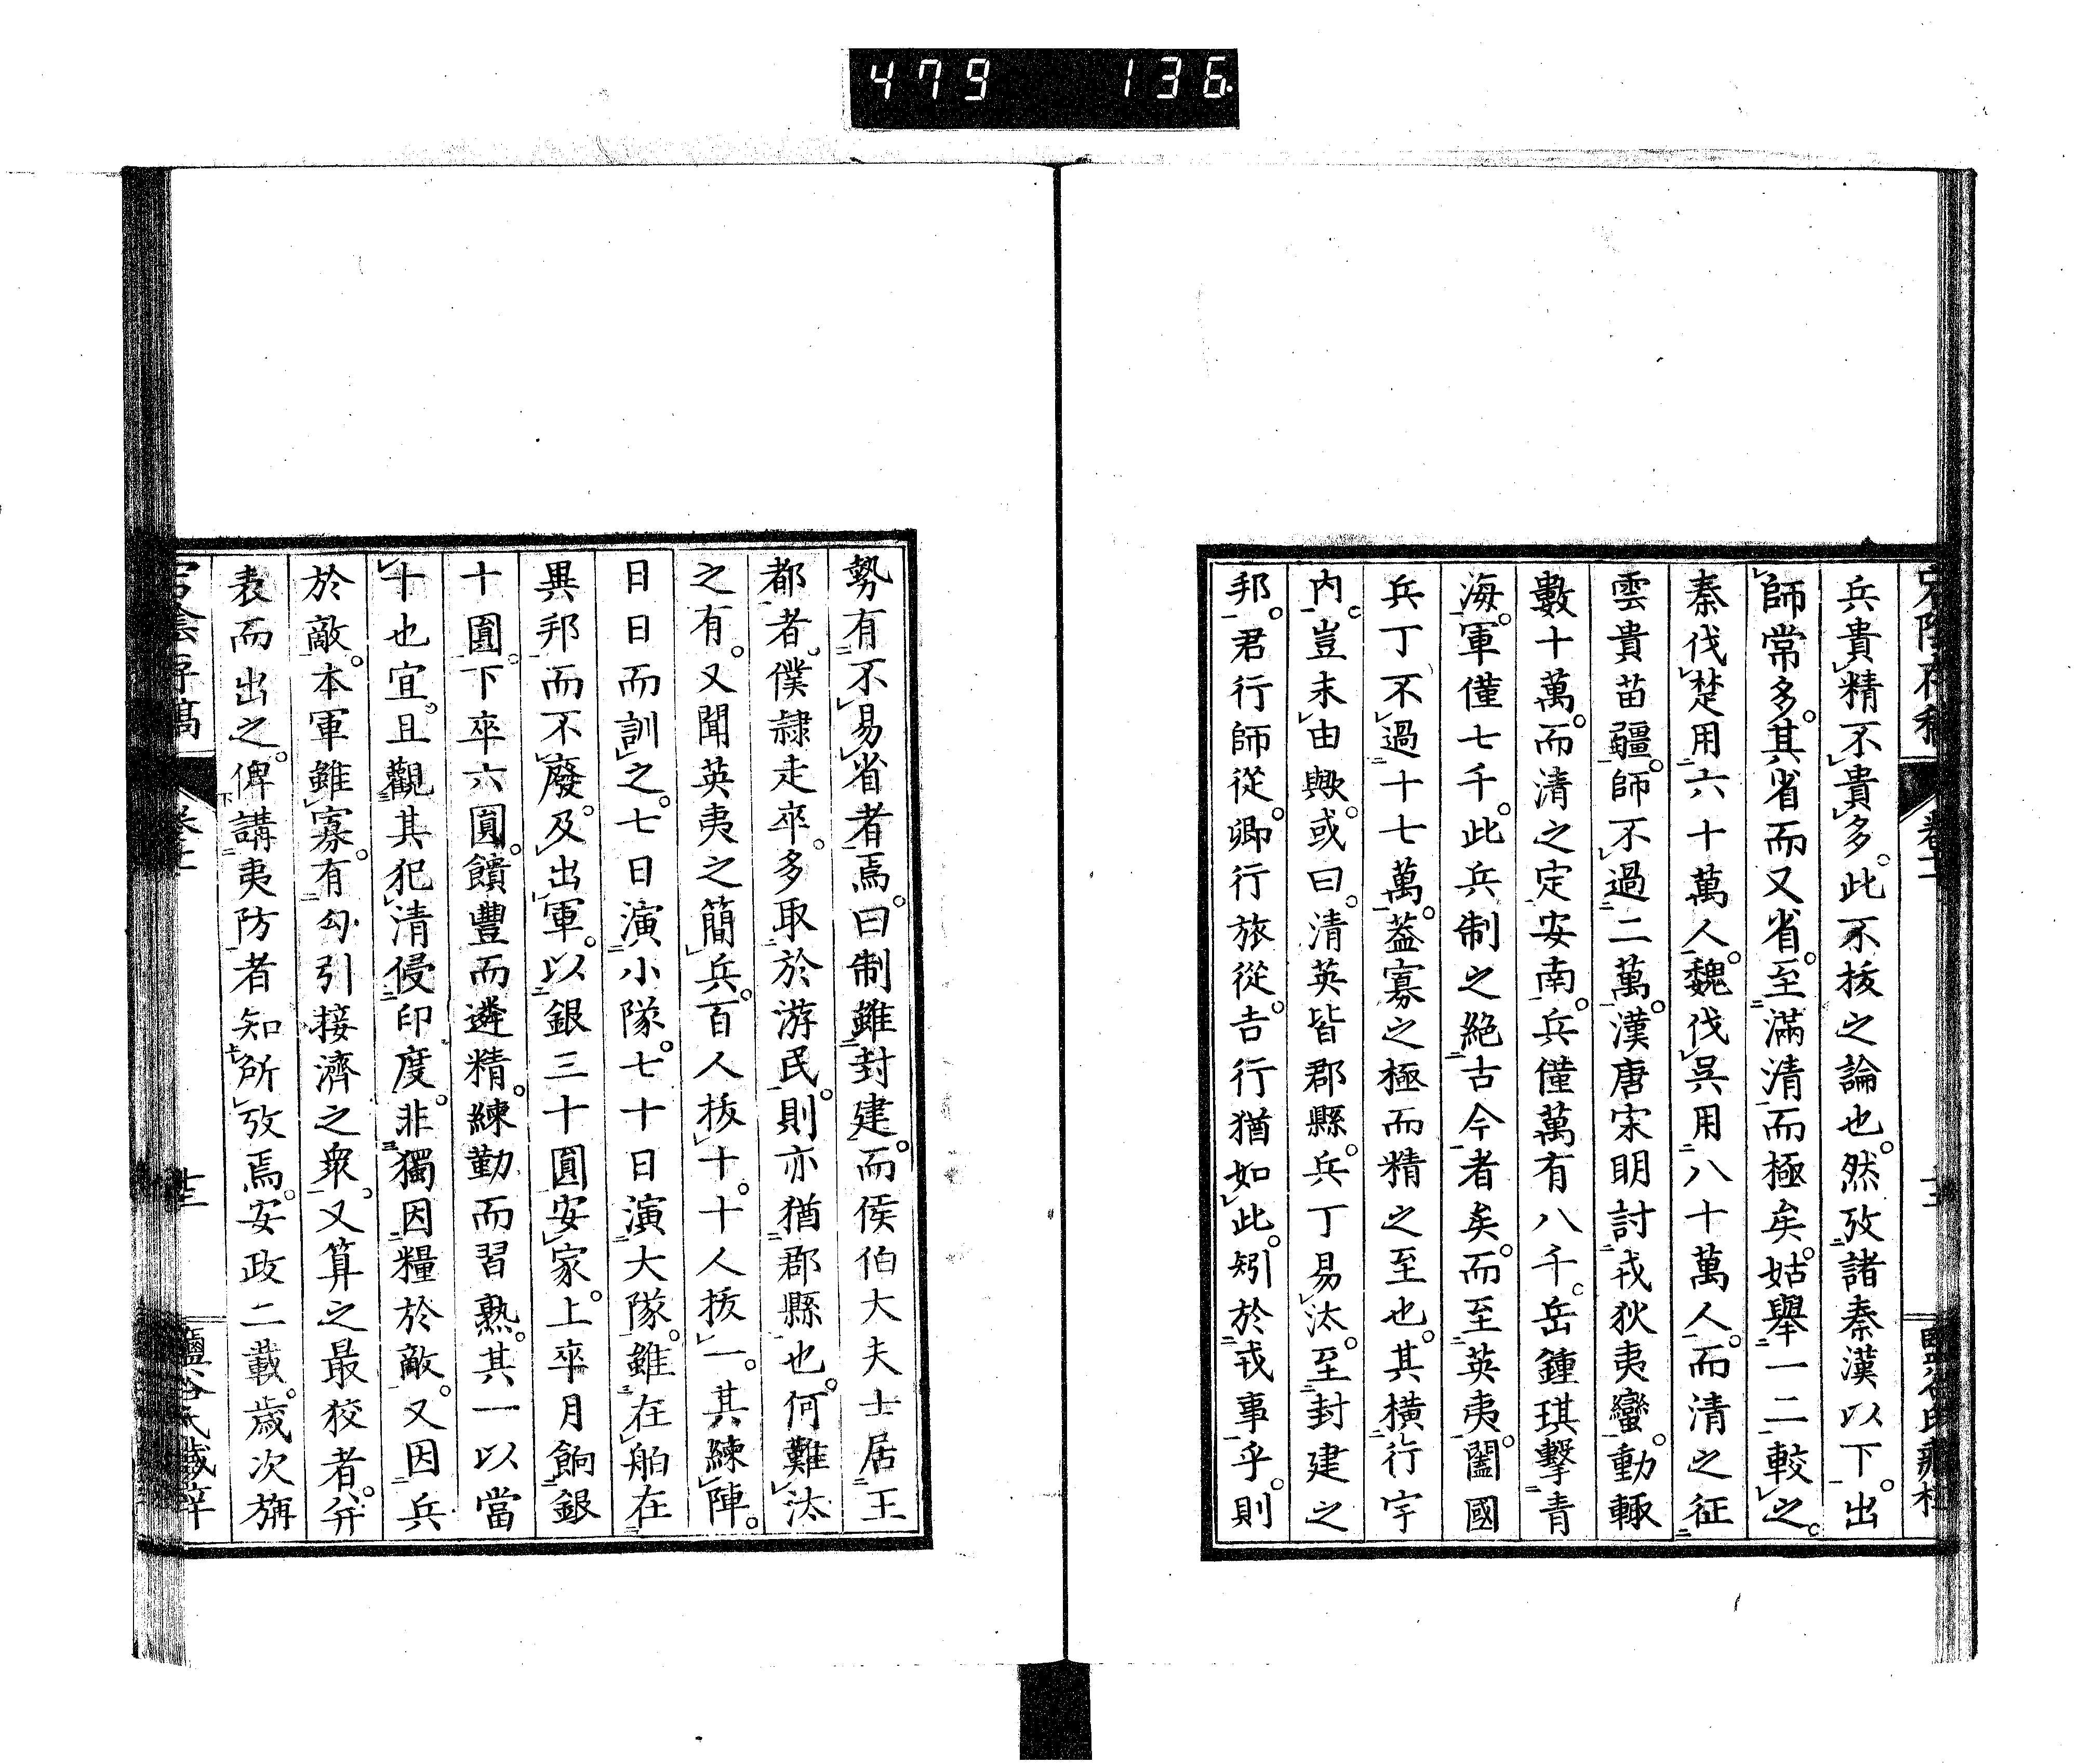 479 136
兵貴精不貴多。此不抜之論也。然攷諸秦漢以下。出
師常多。其省而又省。至滿清而極矣。姑舉一二較之。
秦伐楚用六十萬人。魏伐吳用八十萬人。而清之征
雲貴苗疆。師不過二萬。漢唐宋明討戎狄夷蠻。動輒
數十萬。而清之定安南。兵僅萬有八千。岳鍾琪擊青
海。軍僅七千。此兵制之絕古今者矣。而至英夷。闔國
兵丁不過十七萬。蓋寡之極而精之至也。其橫行宇
內。豈未由歟。或曰。清英皆郡縣。兵丁易汰。至封建之
邦。君行師從。卿行旅從。吉行猶如此。矧於戎事乎。則
勢有不易省者焉。曰制雖封建。而侯伯大夫士居王
都者。僕隷走卒。多取於游民。則亦猶郡縣也。何難汰
之有。又聞英夷之簡兵。百人抜十。十人抜一。其練陣。
日日而訓之。七日演小隊。七十日演大隊。雖在舶在
異邦而不廢。及出軍。以銀三十圓安家。上卒月餉銀
十圓。下卒六圓。饋豐而遴精。練勤而習熟。其一以當
十也宜。且觀其犯清侵印度。非獨因糧於敵。又因兵
於敵。本軍雖寡。有勾引接濟之衆。又算之最狡者。幷
表而出之。俾講夷防者知所攷焉。安政二載。歲次旃